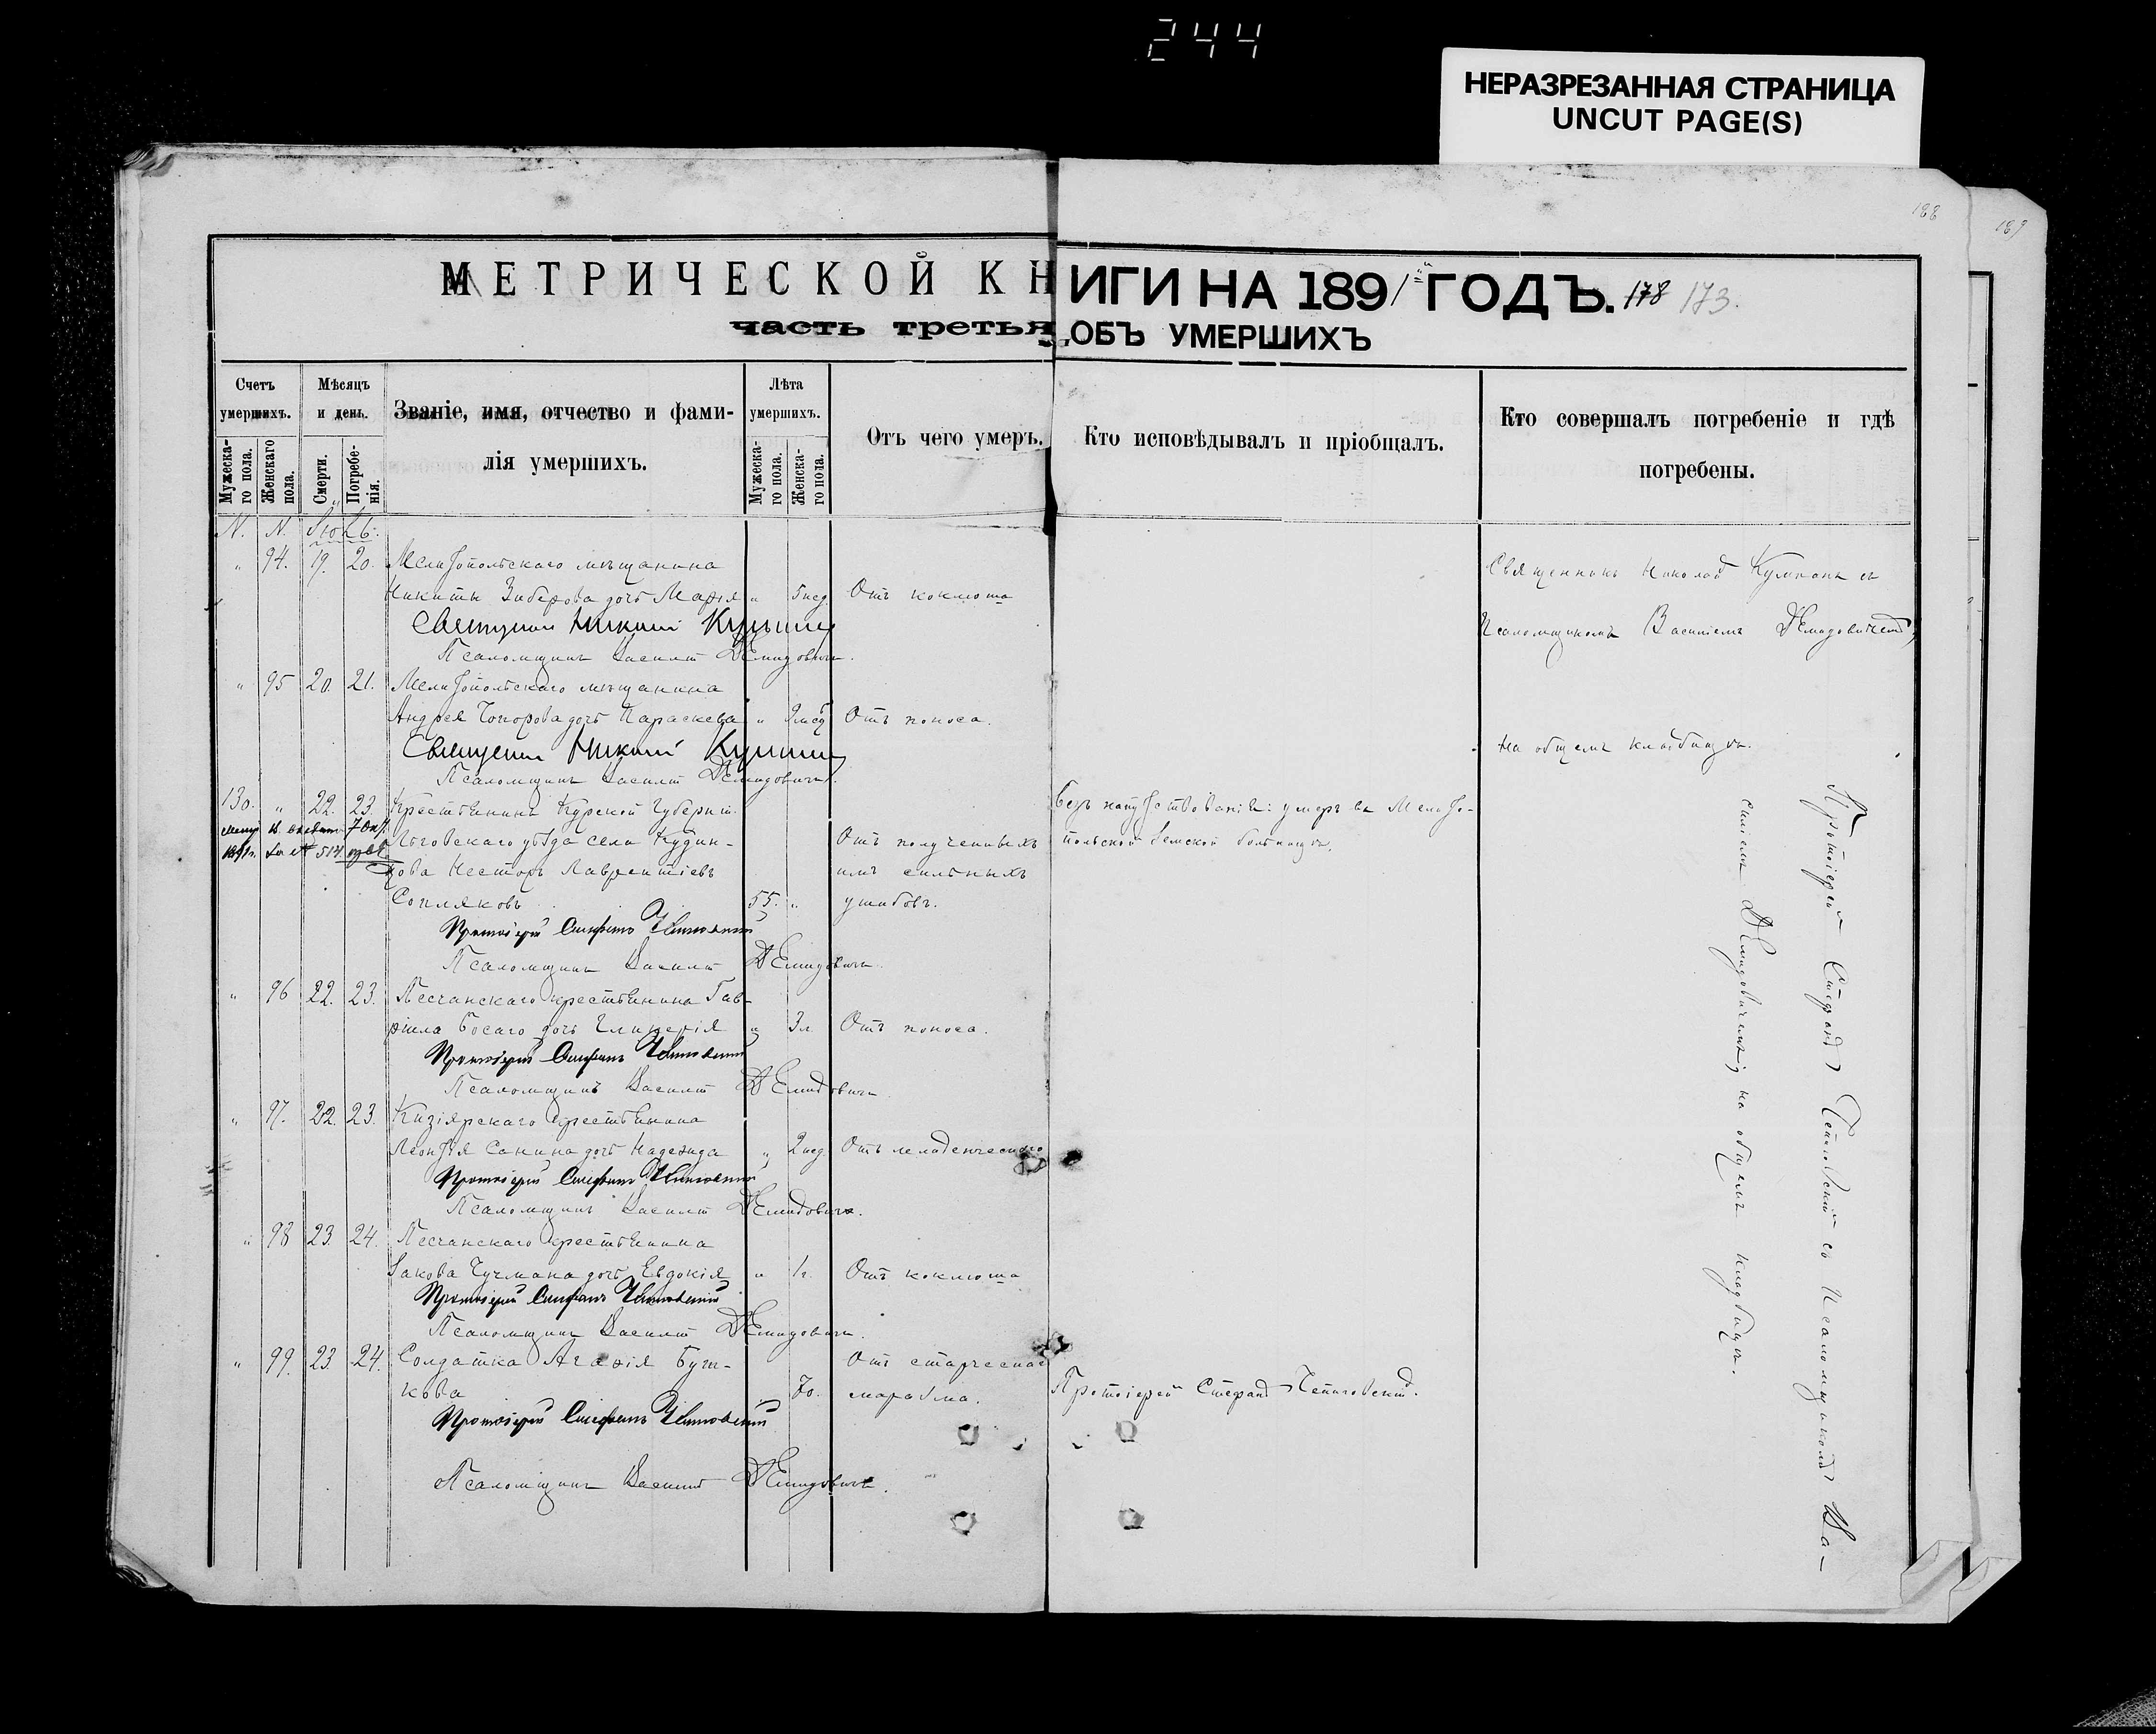 244
НЕРАЗРЕЗАННАЯ СТРАНИЦА
UNCUT PAGE(S)
188
189
МЕТРИЧЕСКОЙ КНИГИ НА 1891 ГОДЪ. 178 173.
часть третья, ОБЪ УМЕРШИХЪ
Счетъ умершихъ.
Мужескаго пола.
Женскаго пола.
Мѣсяцъ и день.
Смерти.
Погребенія.
Званіе, имя, отчество и фамилія умершихъ.
Лѣта умершихъ.
Мужескаго пола.
Женскаго пола.
Отъ чего умеръ.
Кто исповѣдывалъ и пріобщалъ.
Кто совершалъ погребеніе и гдѣ погребены.
N. N. Іюль.
" 94. 19. 20. Мелитопольскаго мѣщанина
Никиты дочь Марія " 5 нед. Отъ коклюша
Священникъ Николай
Псаломщикъ Василій Демидовичъ.
Священникъ Николай
Псаломщикомъ Василіемъ Демидовичемъ,
на общемъ кладбищѣ.
" 95 20. 21. Мелитопольскаго мѣщанина
Андрея Топорова дочь Параскева " 9 мѣс. Отъ поноса.
Священникъ Николай
Псаломщикъ Василій Демидовичъ.
130. " 22. 23. Крестьянинъ Курской Губерніи
Льговскаго уѣзда села
Несторъ Лаврентіевъ
Сопляковъ 55. "
Отъ полученныхъ
имъ сильныхъ
ушибовъ.
Безъ напутствованія: умеръ въ Мелитопольской Земской больницѣ.
Протоіерей Стефанъ
Псаломщикъ Василій Демидовичъ.
" 96 22. 23. Песчанскаго крестьянина Гавріила Босаго дочь Гликерія " 3 л. Отъ поноса.
Протоіерей Стефанъ
Псаломщикъ Василій Демидовичъ
" 97. 22. 23. Кизіярскаго крестьянина
Леонтія Санина дочь Надежда " 2 нед. Отъ младенческаго
Протоіерей Стефанъ
Псаломщикъ Василій Демидовичъ.
" 98 23. 24. Песчанскаго крестьянина
Іакова дочь Евдокія " 1 г. Отъ коклюша
Протоіерей Стефанъ
Псаломщикъ Василій Демидовичъ.
" 99. 23 24. Солдатка Агафія
70.
Отъ старческаго
маразма.
Протоіерей Стефанъ
Протоіерей Стефанъ
Псаломщикъ Василій Демидовичъ.
Протоіерей Стефанъ съ Псаломщикомъ Ва-
силіемъ Демидовичемъ, на общемъ кладбищѣ.